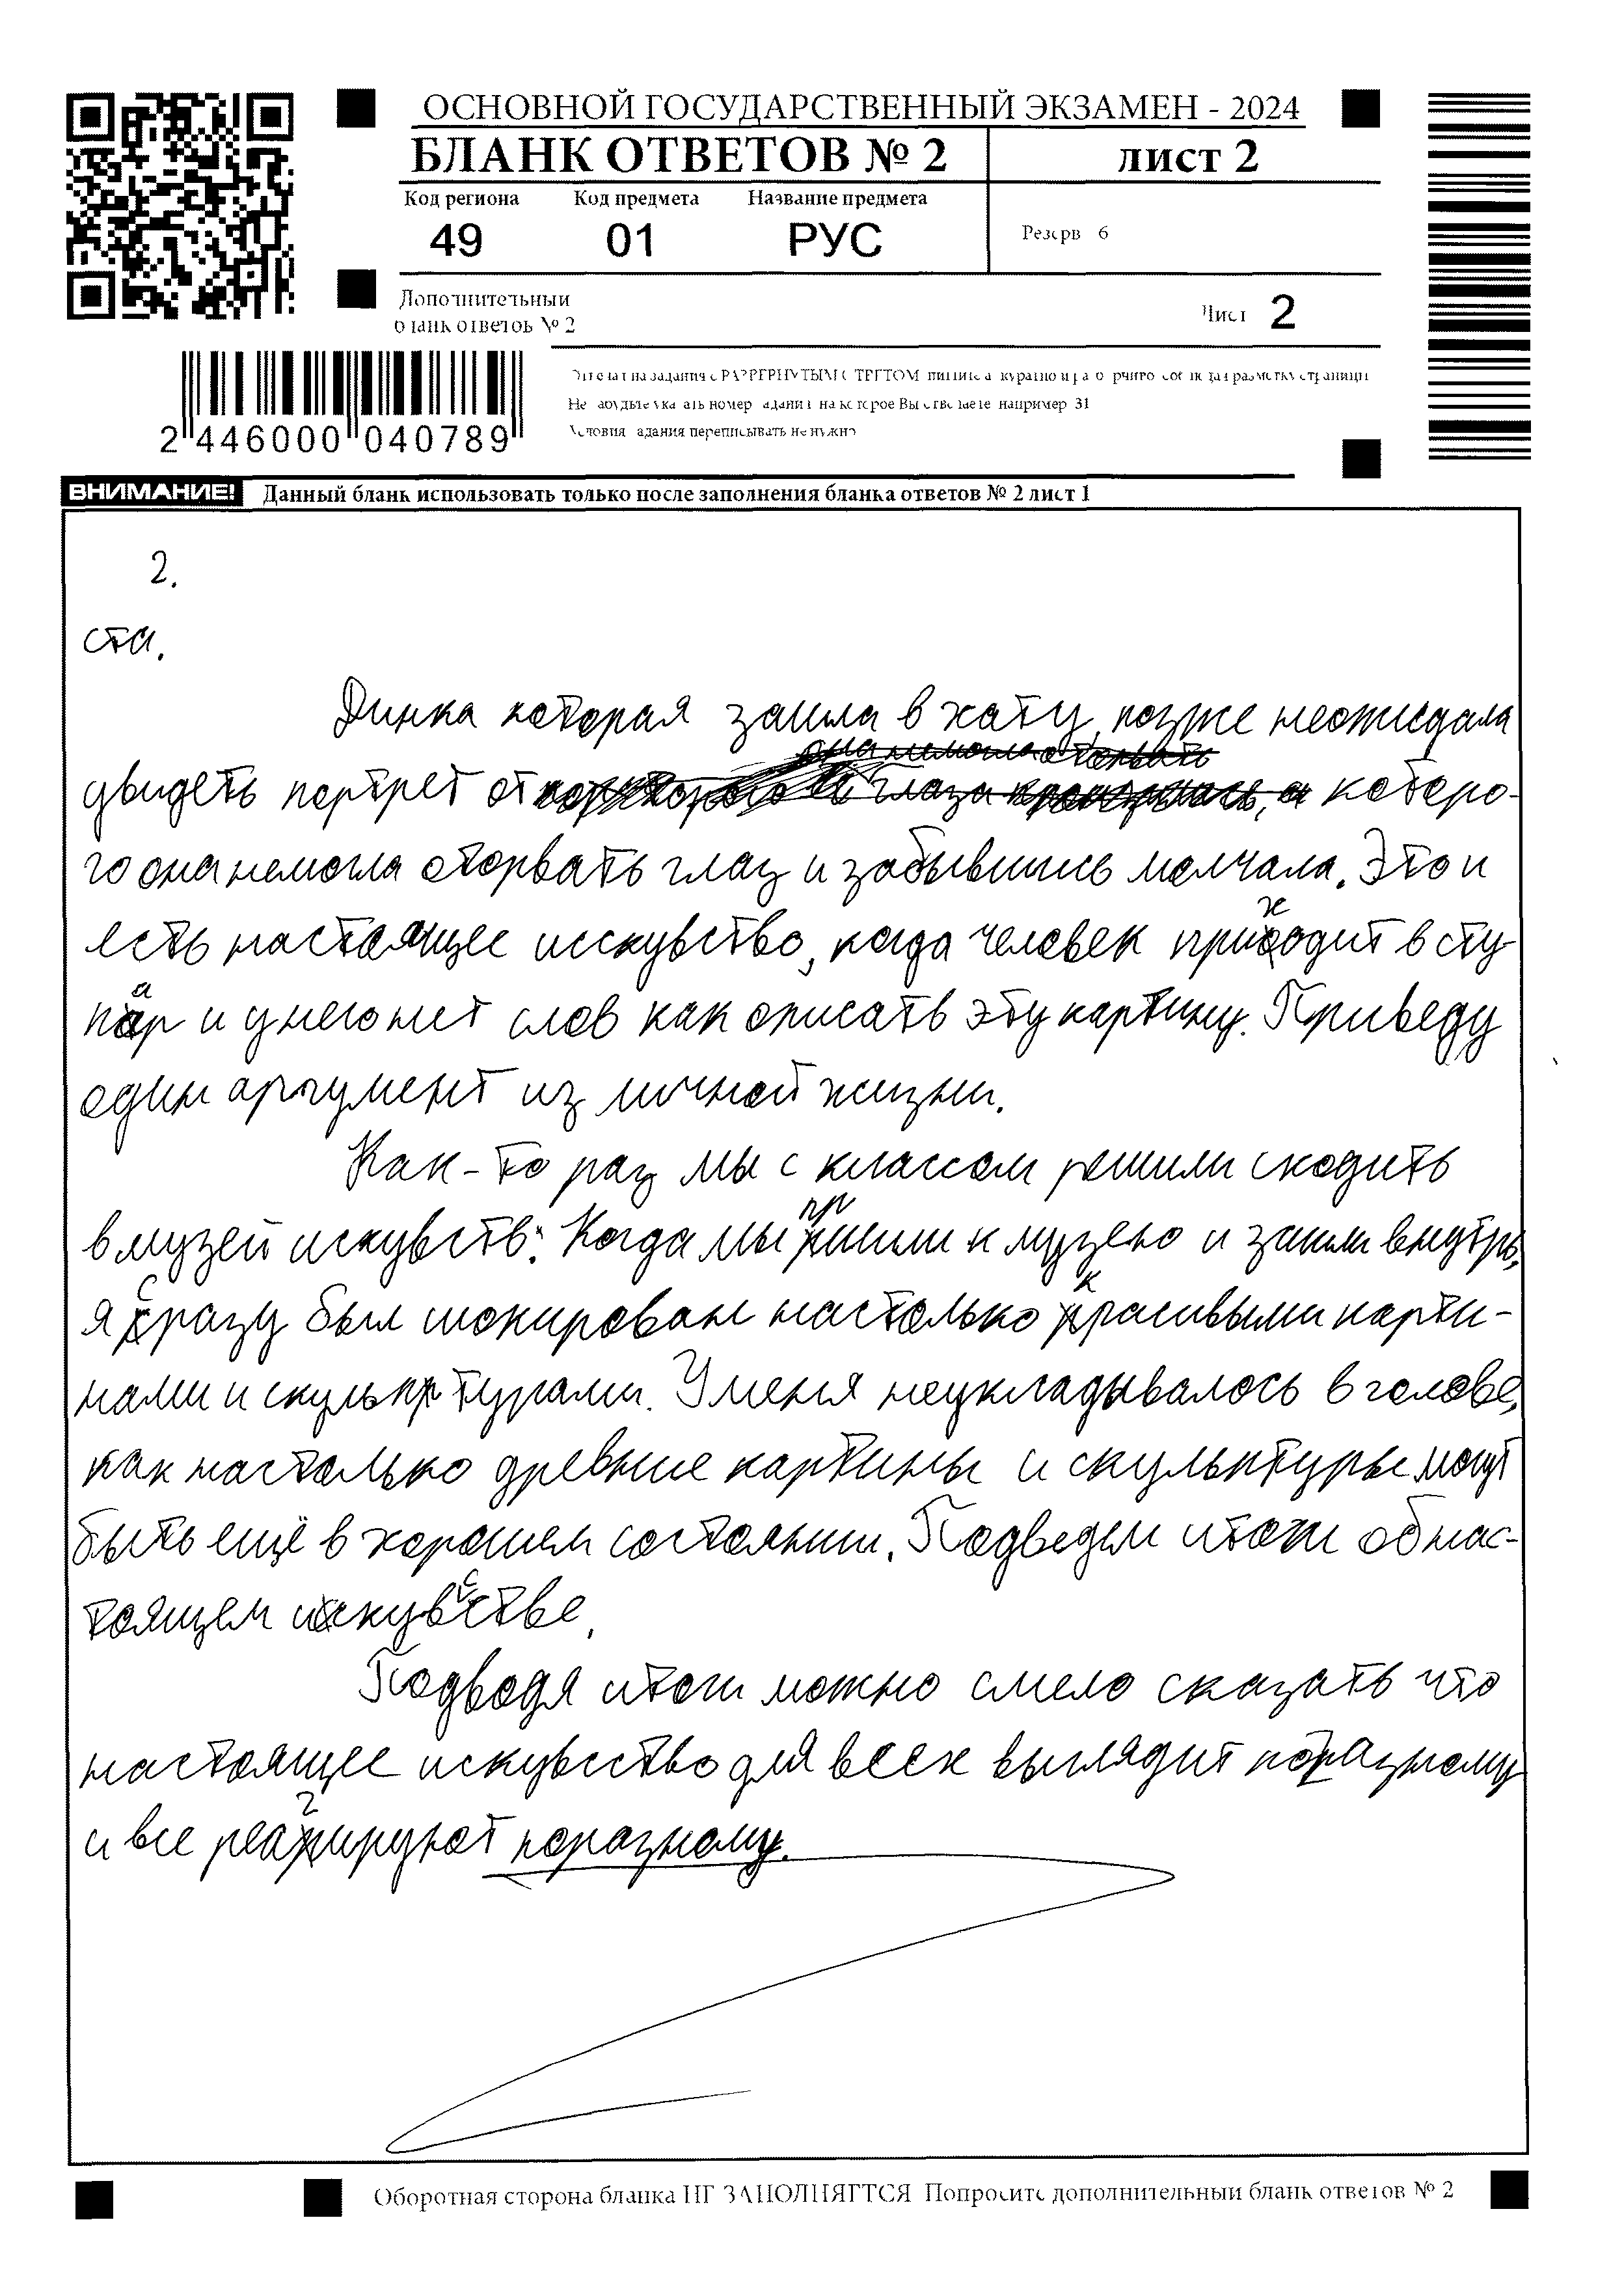 ОСНОВНОЙ ГОСУДАРСТВЕННЫЙ ЭКЗАМЕН - 2024
БЛАНК ОТВЕТОВ № 2
лист 2
Код региона Код предмета Название предмета
49 01 РУС
Резерв 6
Дополнительный
бланк ответов № 2
Лист 2
2 446000 040789
Не забудьте указать номер задания на которое Вы отвечаете например 31
Условия задания переписывать не нужно
ВНИМАНИЕ! Данный бланк использовать только после заполнения бланка ответов № 2 лист 1
2.
ста.
Динка которая зашла в хату, позже неожидала
увидеть портрет от которо-
го она немогла оторвать глаз и забывшись молчала. Это и
есть настоящее исскувство, когда человек приходит в сту
пар и у него нет слов как описать эту картину. Приведу
один аргумент из личной жизни.
Как-то раз мы с классом решили сходить
в музей искувств. Когда мы пришли к музею и зашли внутрь,
я сразу был шокирован настолько красивыми карти-
нами и скульптурами. У меня неукладывалось в голове,
как настолько древние картины и скульптуры могут
быть ещё в хорошем состоянии. Подведем итоги об нас-
тоящем искувстве.
Подводя итоги можно смело сказать что
настоящее искувсство для всех выглядит поразному
и все реагируют поразному.
Оборотная сторона бланка НЕ ЗАПОЛНЯЕТСЯ Попросите дополнительный бланк ответов № 2